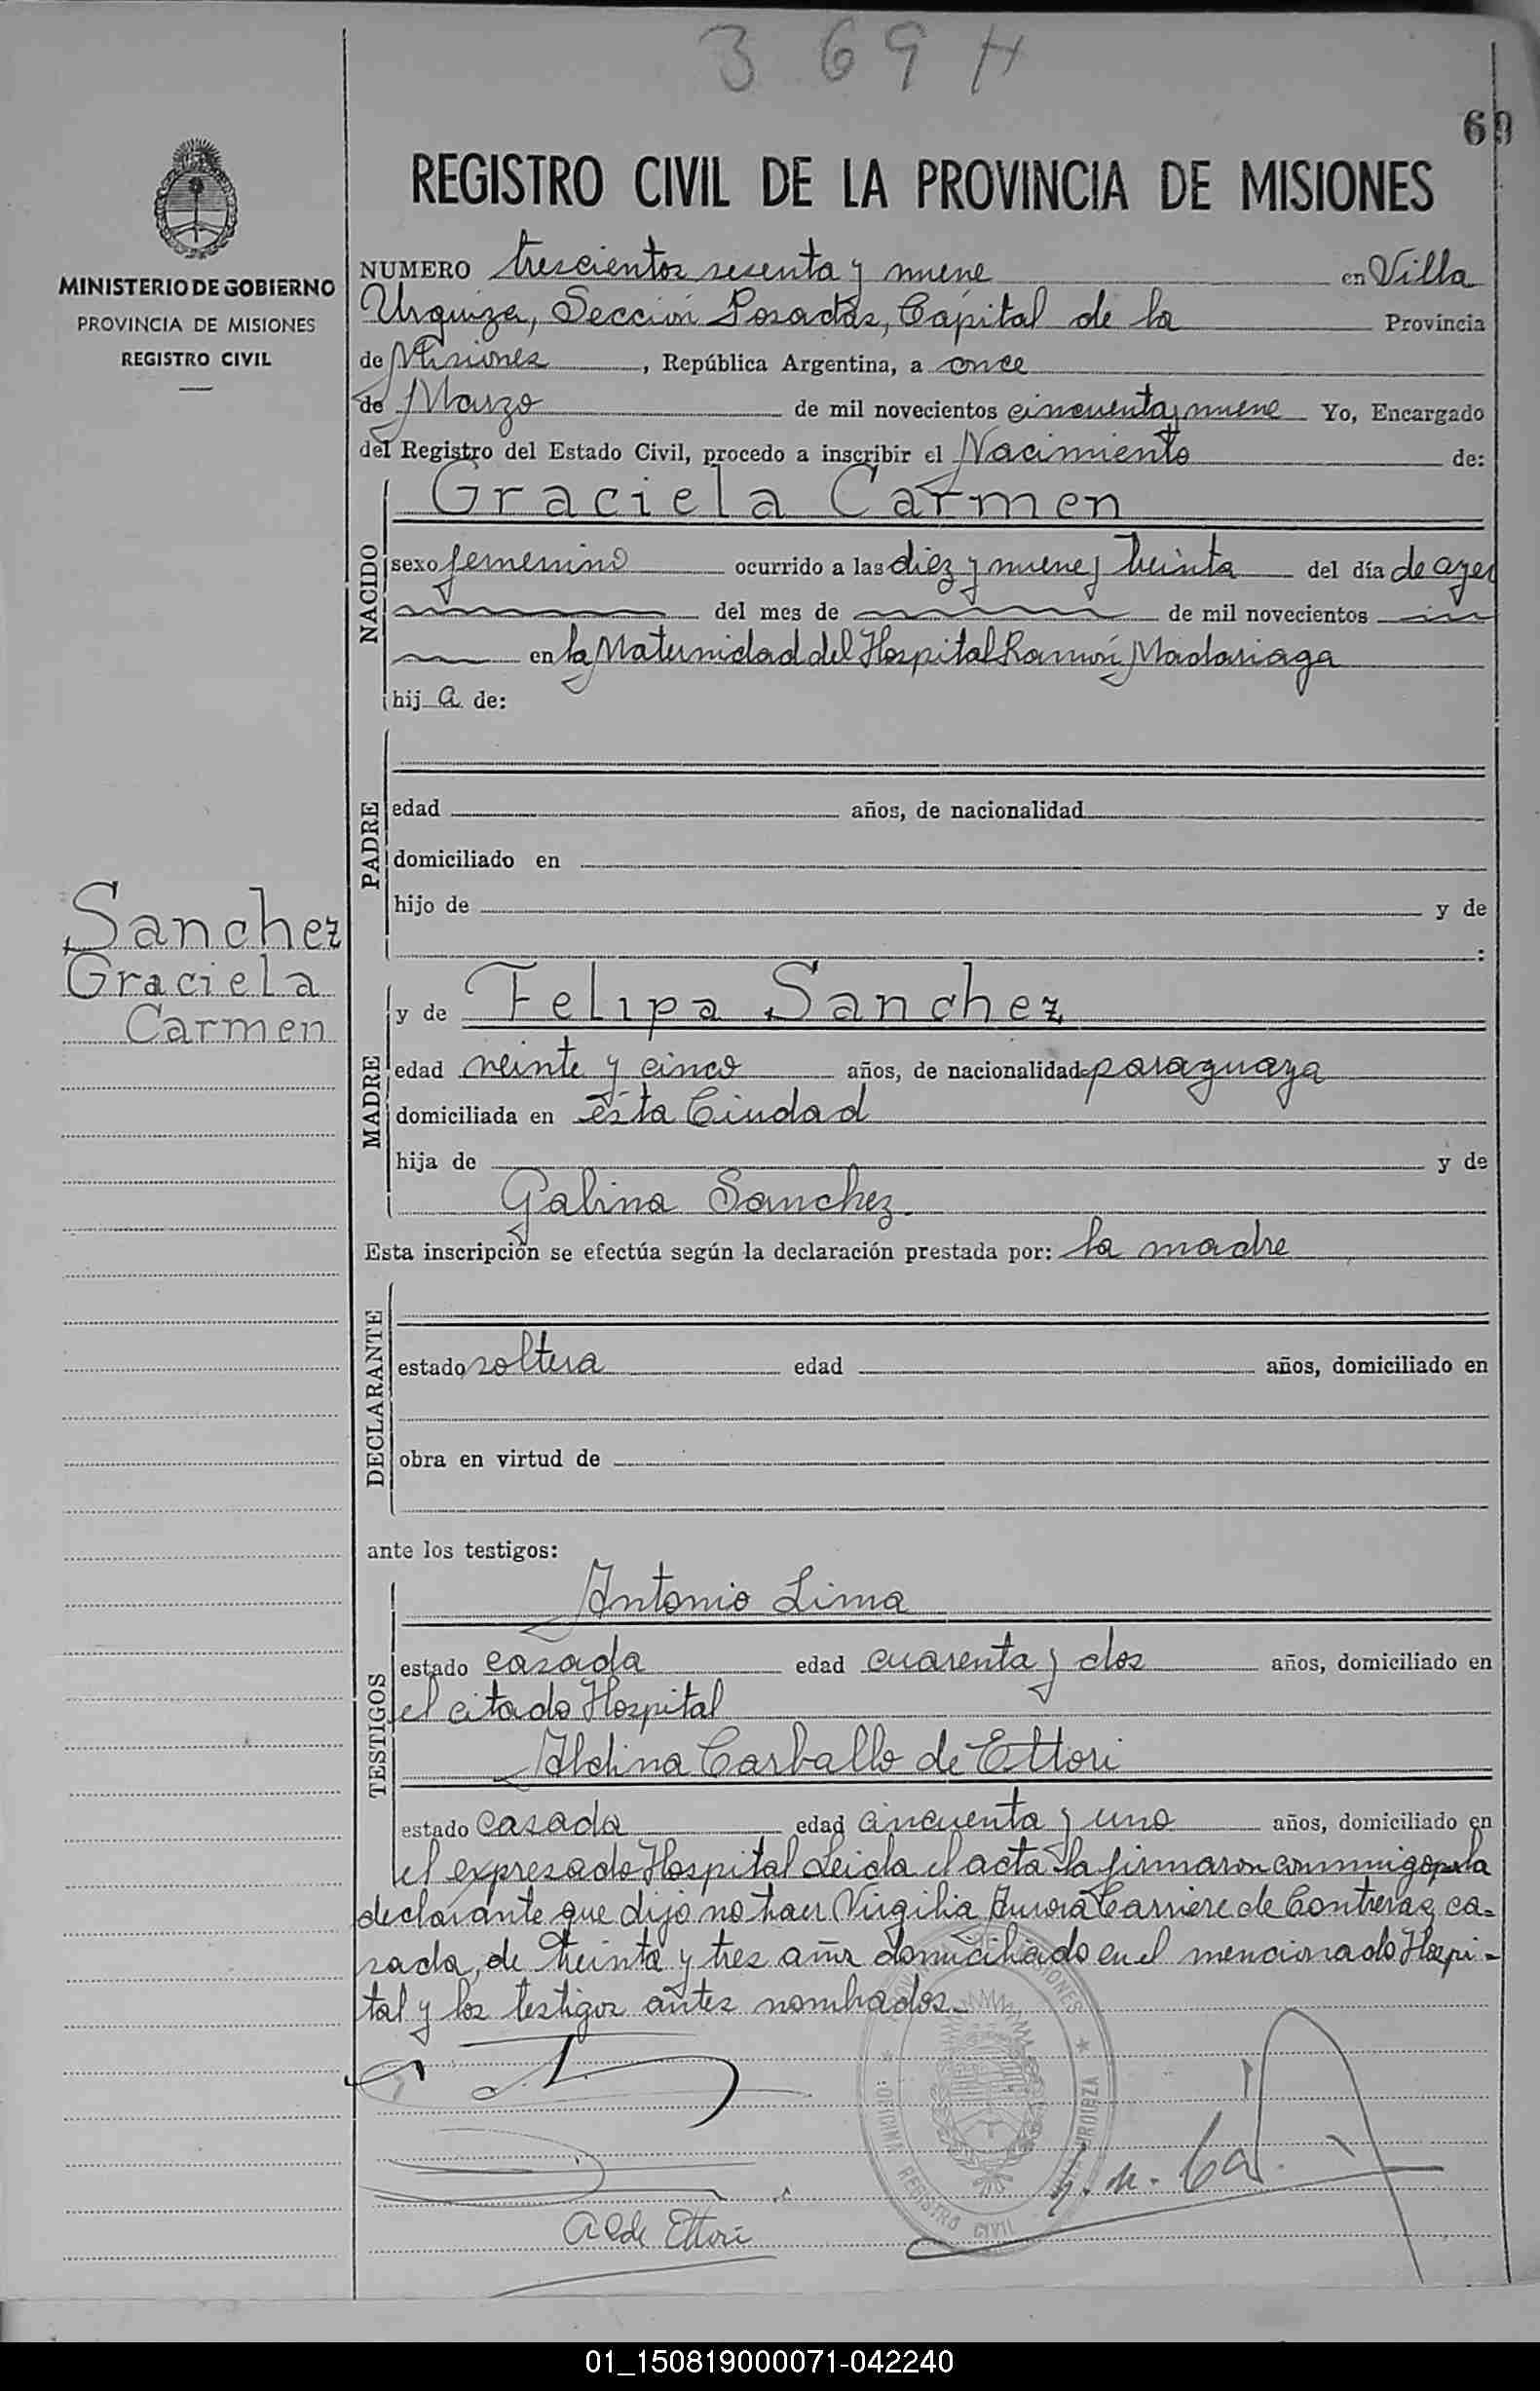 369 H
69
REGISTRO CIVIL DE LA PROVINCIA DE MISIONES
MINISTERIO DE GOBIERNO
PROVINCIA DE MISIONES
REGISTRO CIVIL
NUMERO trescientos sesenta y nueve en Villa
Urquiza, Sección Posadas, Capital de la Provincia
de Misiones, República Argentina, a once
de Marzo de mil novecientos cincuenta y nueve Yo, Encargado
del Registro del Estado Civil, procedo a inscribir el Nacimiento de:
Graciela Carmen
NACIDO
sexo femenino ocurrido a las diez y nueve y treinta del día de ayer
del mes de de mil novecientos
en la Maternidad del Hospital Ramón Madariaga
hij a de:
PADRE
edad años, de nacionalidad
domiciliado en
hijo de y de
:
Sanchez
Graciela
Carmen
MADRE
y de Felipa Sanchez
edad veinte y cinco años, de nacionalidad paraguaya
domiciliada en ésta Ciudad
hija de y de
Galina Sanchez.
Esta inscripción se efectúa según la declaración prestada por: la madre
DECLARANTE
estado soltera edad años, domiciliado en
obra en virtud de
ante los testigos:
TESTIGOS
Antonio Lima
estado casada edad cuarenta y dos años, domiciliado en
el citado Hospital
Aldina Carballo de Ettori
estado casada edad cincuenta y uno años, domiciliado en
el expresado Hospital Leida el acta la firmaron conmigo por la
declarante que dijo no hacer Virgilia Aurora Carriere de Contreras, ca-
sada, de treinta y tres años domiciliado en el mencionado Hospi-
tal y los testigos antes nombrados.-
A C de Ettori
OFICINA REGISTRO CIVIL
01_150819000071-042240